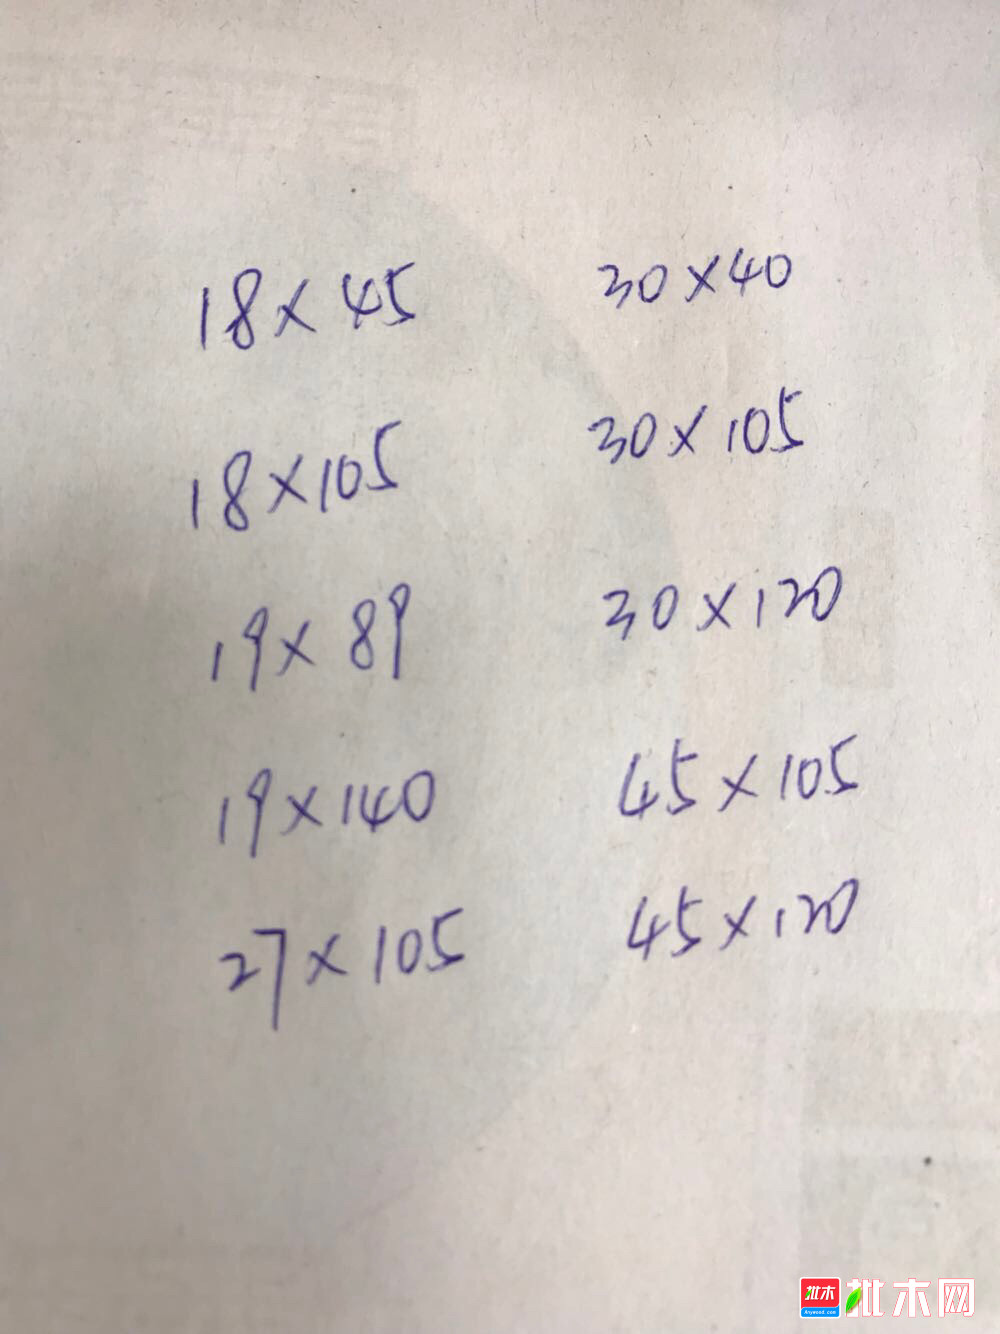 18×45
30×40
18×105
30×105
19×89
30×120
19×140
45×105
27×105
45×120
批木
Anywood.com
批木网